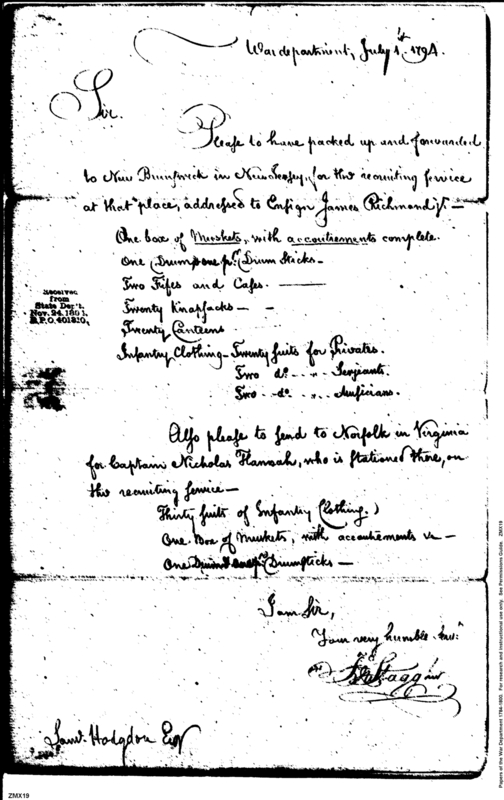 War department, July 1st. 1794.
Sir.
Please to have packed up and forwarded
to New Brunswick in New Jersey, for the recruiting service
at that place, addressed to Ensign James Richmond jr —
One box of Muskets, with accoutrements complete.
One Drum, one pr. Drum Sticks —
Two Fifes and Cases. ———
Twenty Knapsacks — —
Twenty Canteens
Infantry Clothing — Twenty suits for Privates.
Two do. - „ - Serjeants.
Two do. - „ - Musicians.
Received
from
State Dep't.
Nov. 24, 1891.
R.P.O. 401310.
Also please to send to Norfolk in Virginia
for Captain Nicholas Hannah, who is stationed there, on
the recruiting service —
Thirty suits of Infantry Clothing.
One Box of Muskets, with accoutrements &c —
One Drum & one pr. Drumsticks —
I am Sir,
Your very humble serv:
Jno Stagg jr
Saml. Hodgdon Esqr
ZMX19
Papers of the War Department 1784-1800. For research and instructional use only. See Permissions Guide. ZMX19